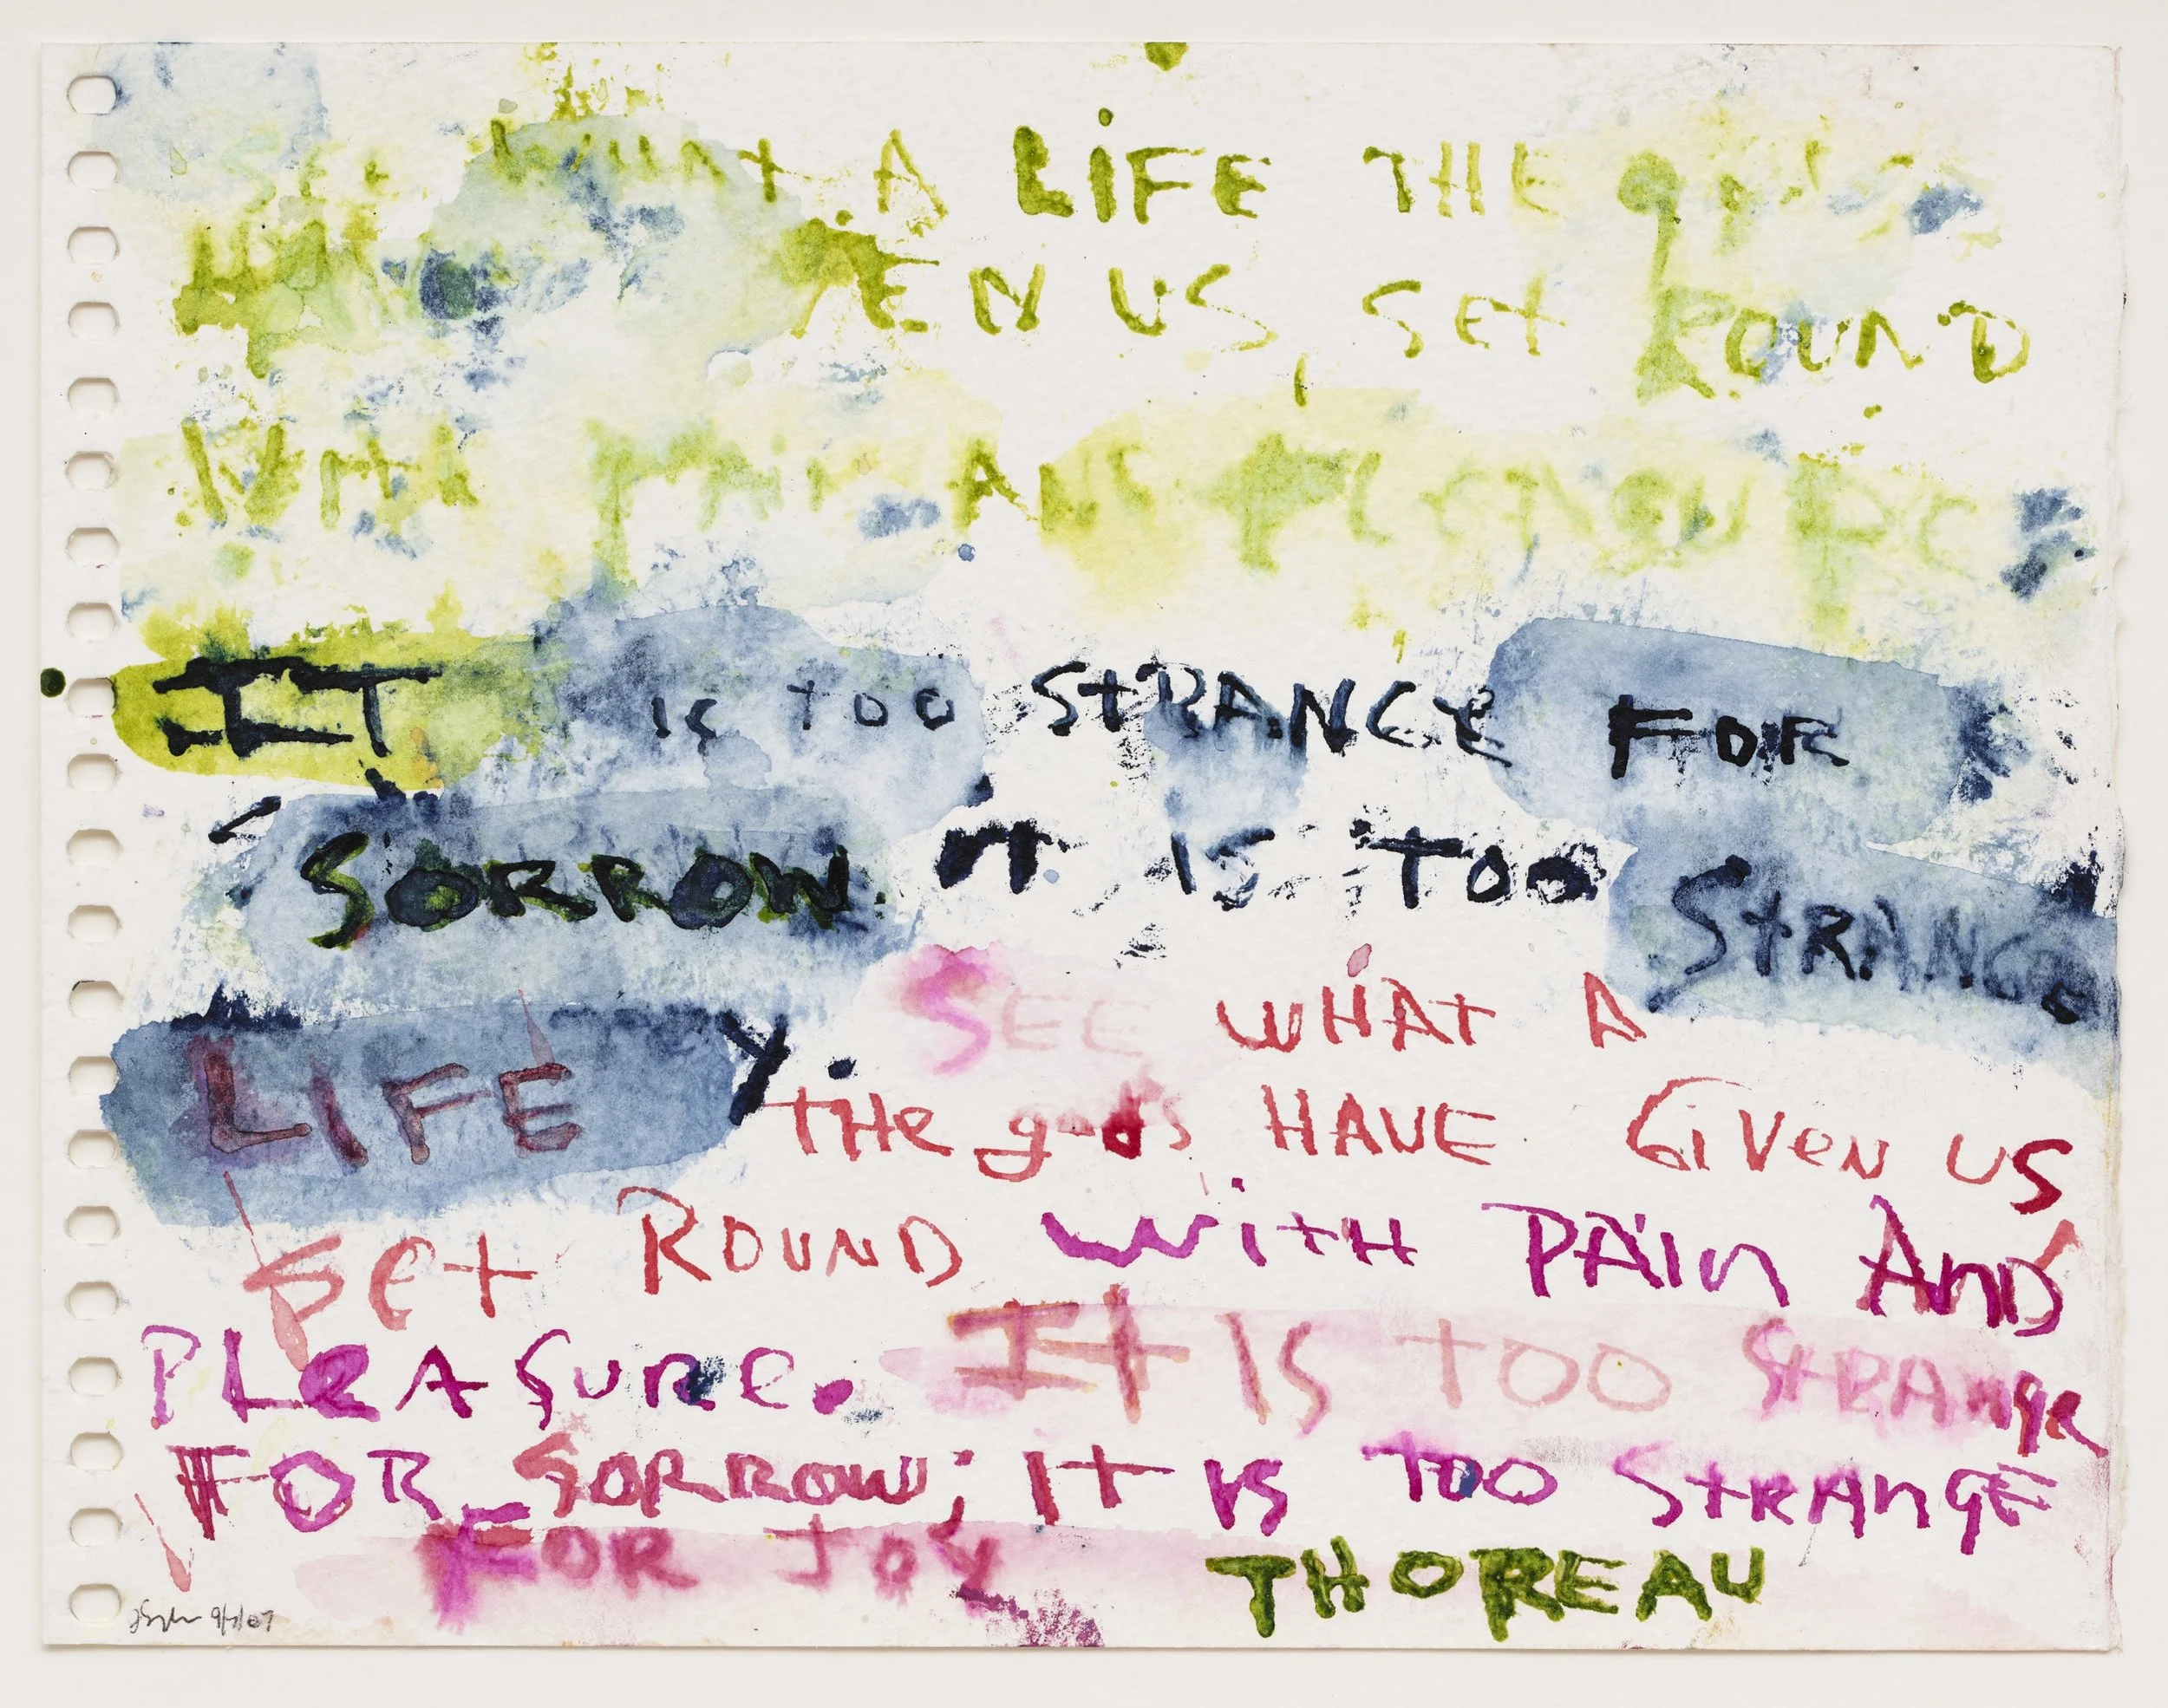 See what A LiFE THE gods
HAV EN US, Set ROUND
With pain AND PLEASURE
IT is too StRANGE FOR
SORROW. IT IS TOO StRANGE
y. SEE WHAt A
LIFE THe gods HAVE GiVeN US
Set ROUND WitH PAiN AnD
PLeASURe. It IS TOO StRANge
FOR SORROW; It IS TOO StRAngE
FOR JOY THOREAU
9/7/07